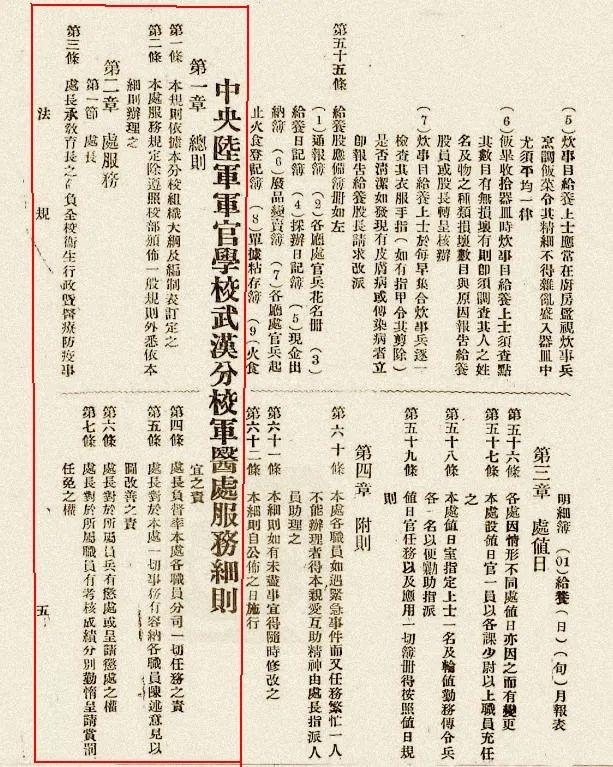 (5)炊事目給養上士應常在廚房監視炊事兵
烹調飯菜令其精細不得雜亂盛入器皿中
尤須平均一律
(6)飯畢收拾器皿時炊事目給養上士須查點
其數目有無損壞有則卽須調查其人之姓
名及物之種類損壞數目與原因報告給養
股員或股長轉呈核辦
(7)炊事目給養上士於每早集合炊事兵逐一
檢查其衣服手指(如有指甲令其剪除)
是否清潔如發現有皮膚病或傳染病者立
卽報告給養股長請求改派
第五十五條 給養股應備簿冊如左
(1)通報簿 (2)各廳處官兵花名冊 (3)
給養日記簿 (4)採辦日記簿 (5)現金出
納簿 (6)廢品變賣簿 (7)各廳處官兵起
止火食登記簿 (8)單據粘存簿 (9)火食
明細簿 (01)給養(日)(旬)月報表
第三章 處值日
第五十六條 各處因情形不同處值日亦因之而有變更
第五十七條 本處設值日官一員以各課少尉以上職員充任
之
第五十八條 本處值日室指定上士一名及輪值勤務傳令兵
各一名以便勤助指派
第五十九條 值日官任務以及應用一切簿冊得按照值日規
則
第四章 附則
第六十條 本處各職員如遇緊急事件而又任務繁忙一人
不能辦理者得本親愛互助精神由處長指派人
員助理之
第六十一條 本細則如有未盡事宜得隨時修改之
第六十二條 本細則自公佈之日施行
中央陸軍軍官學校武漢分校軍醫處服務細則
第一章 總則
第一條 本規則依據本分校組織大綱及編制表訂定之
第二條 本處服務規定除遵照校部頒佈一般規則外悉依本
細則辦理之
第二章 處服務
第一節 處長
第三條 處長承敎育長之命負全校衛生行政暨醫療防疫事
宜之責
第四條 處長負督率本處各職員分司一切任務之責
第五條 處長對於本處一切事務有容納各職員陳述意見以
圖改善之責
第六條 處長對於所屬員兵有懲處或呈請懲處之權
第七條 處長對於所屬職員有考核成績分別勤惰呈請賞罰
任免之權
法規 五